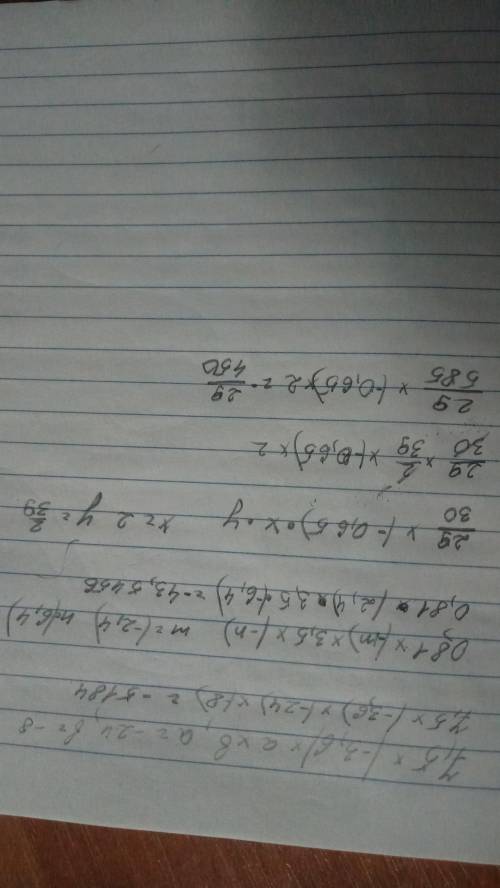 7,5 × (-3,6) × a × b, a = -24, b = -8
7,5 × (-3,6) × (-24) × (-8) = -5184
0,81 × (-m) × 3,5 × (-n) m = (-2,4) n = (-6,4)
0,81 × (2,4) × 3,5 × (-6,4) = -43,5456
29/30 × (-0,65) • x • y x = 2 y = 2/39
29/30 × 2/39 × (-0,65) × 2
29/585 × (-0,65) × 2 = -29/450